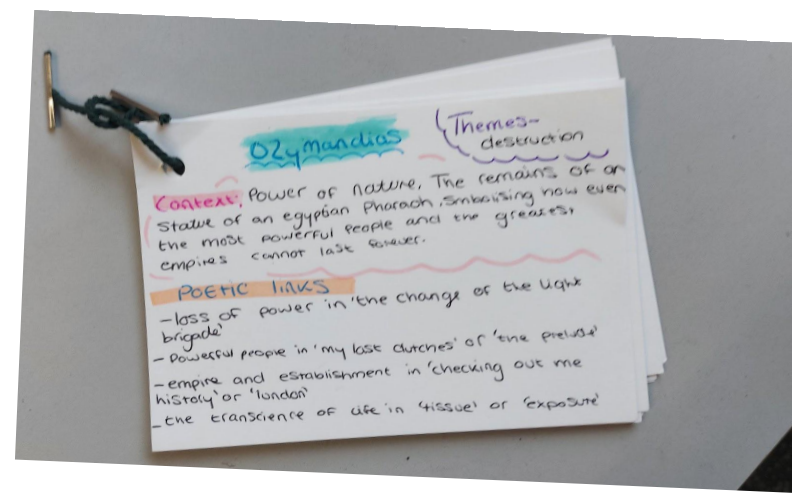 Ozymandias
Themes-
destruction
Context: Power of nature, The remains of an
statue of an egyptian Pharaoh, Smbolising how even
the most powerful people and the greatest
empires cannot last forever.
POETIC links
-loss of power in 'the change of the light
brigade'
- Powerful people in 'my last dutches' or 'the prelude'
-empire and establishment in 'checking out me
history' or 'london'
-the transcience of life in 'tissue' or 'exposure'